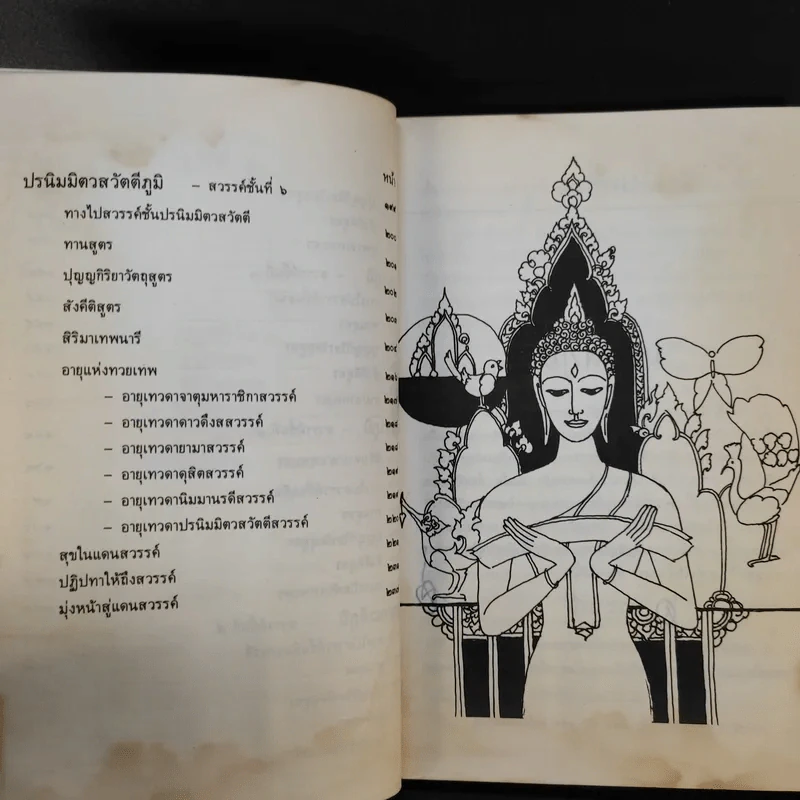 ปรนิมมิตวสวัตตีภูมิ – สวรรค์ชั้นที่ ๖ หน้า
ทางไปสวรรค์ชั้นปรนิมมิตวสวัตตี
ทานสูตร ๒๐๐
ปุญญกิริยาวัตถุสูตร ๒๐๑
สังคีติสูตร
สิริมาเทพนารี
อายุแห่งทวยเทพ
– อายุเทวดาจาตุมหาราชิกาสวรรค์
– อายุเทวดาดาวดึงสสวรรค์
– อายุเทวดายามาสวรรค์
– อายุเทวดาดุสิตสวรรค์
– อายุเทวดานิมมานรดีสวรรค์
– อายุเทวดาปรนิมมิตวสวัตตีสวรรค์
สุขในแดนสวรรค์
ปฏิปทาให้ถึงสวรรค์
มุ่งหน้าสู่แดนสวรรค์